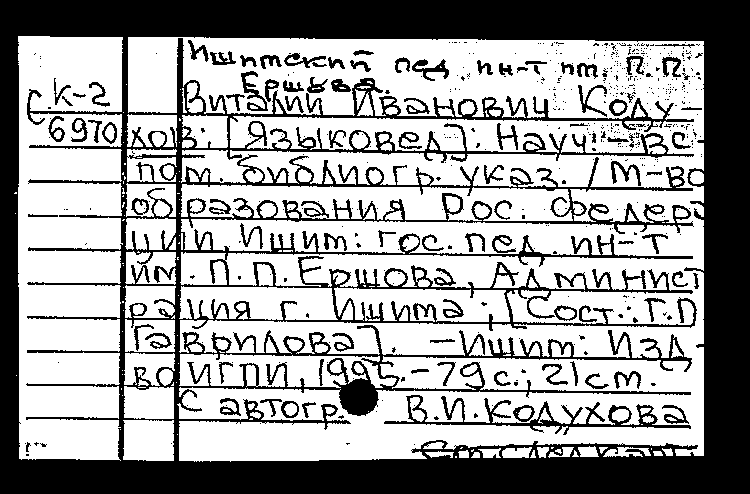 Ишимский пед. ин-т им. П.П.
Ершова.
К-2 Виталий Иванович Коду-
6970 хов: [Языковед]: Науч.-вс-
пом. библиогр. указ. / М-во
образования Рос. Федера
ции, Ишим. гос. пед. ин-т
им. П.П. Ершова, Админист
рация г. Ишима ; [Сост.: Г.П
Гаврилова]. - Ишим: Изд-
во ИГПИ, 1995. - 79 с.; 21 см.
С автогр. В.И. Кодухова
См. след. карт.